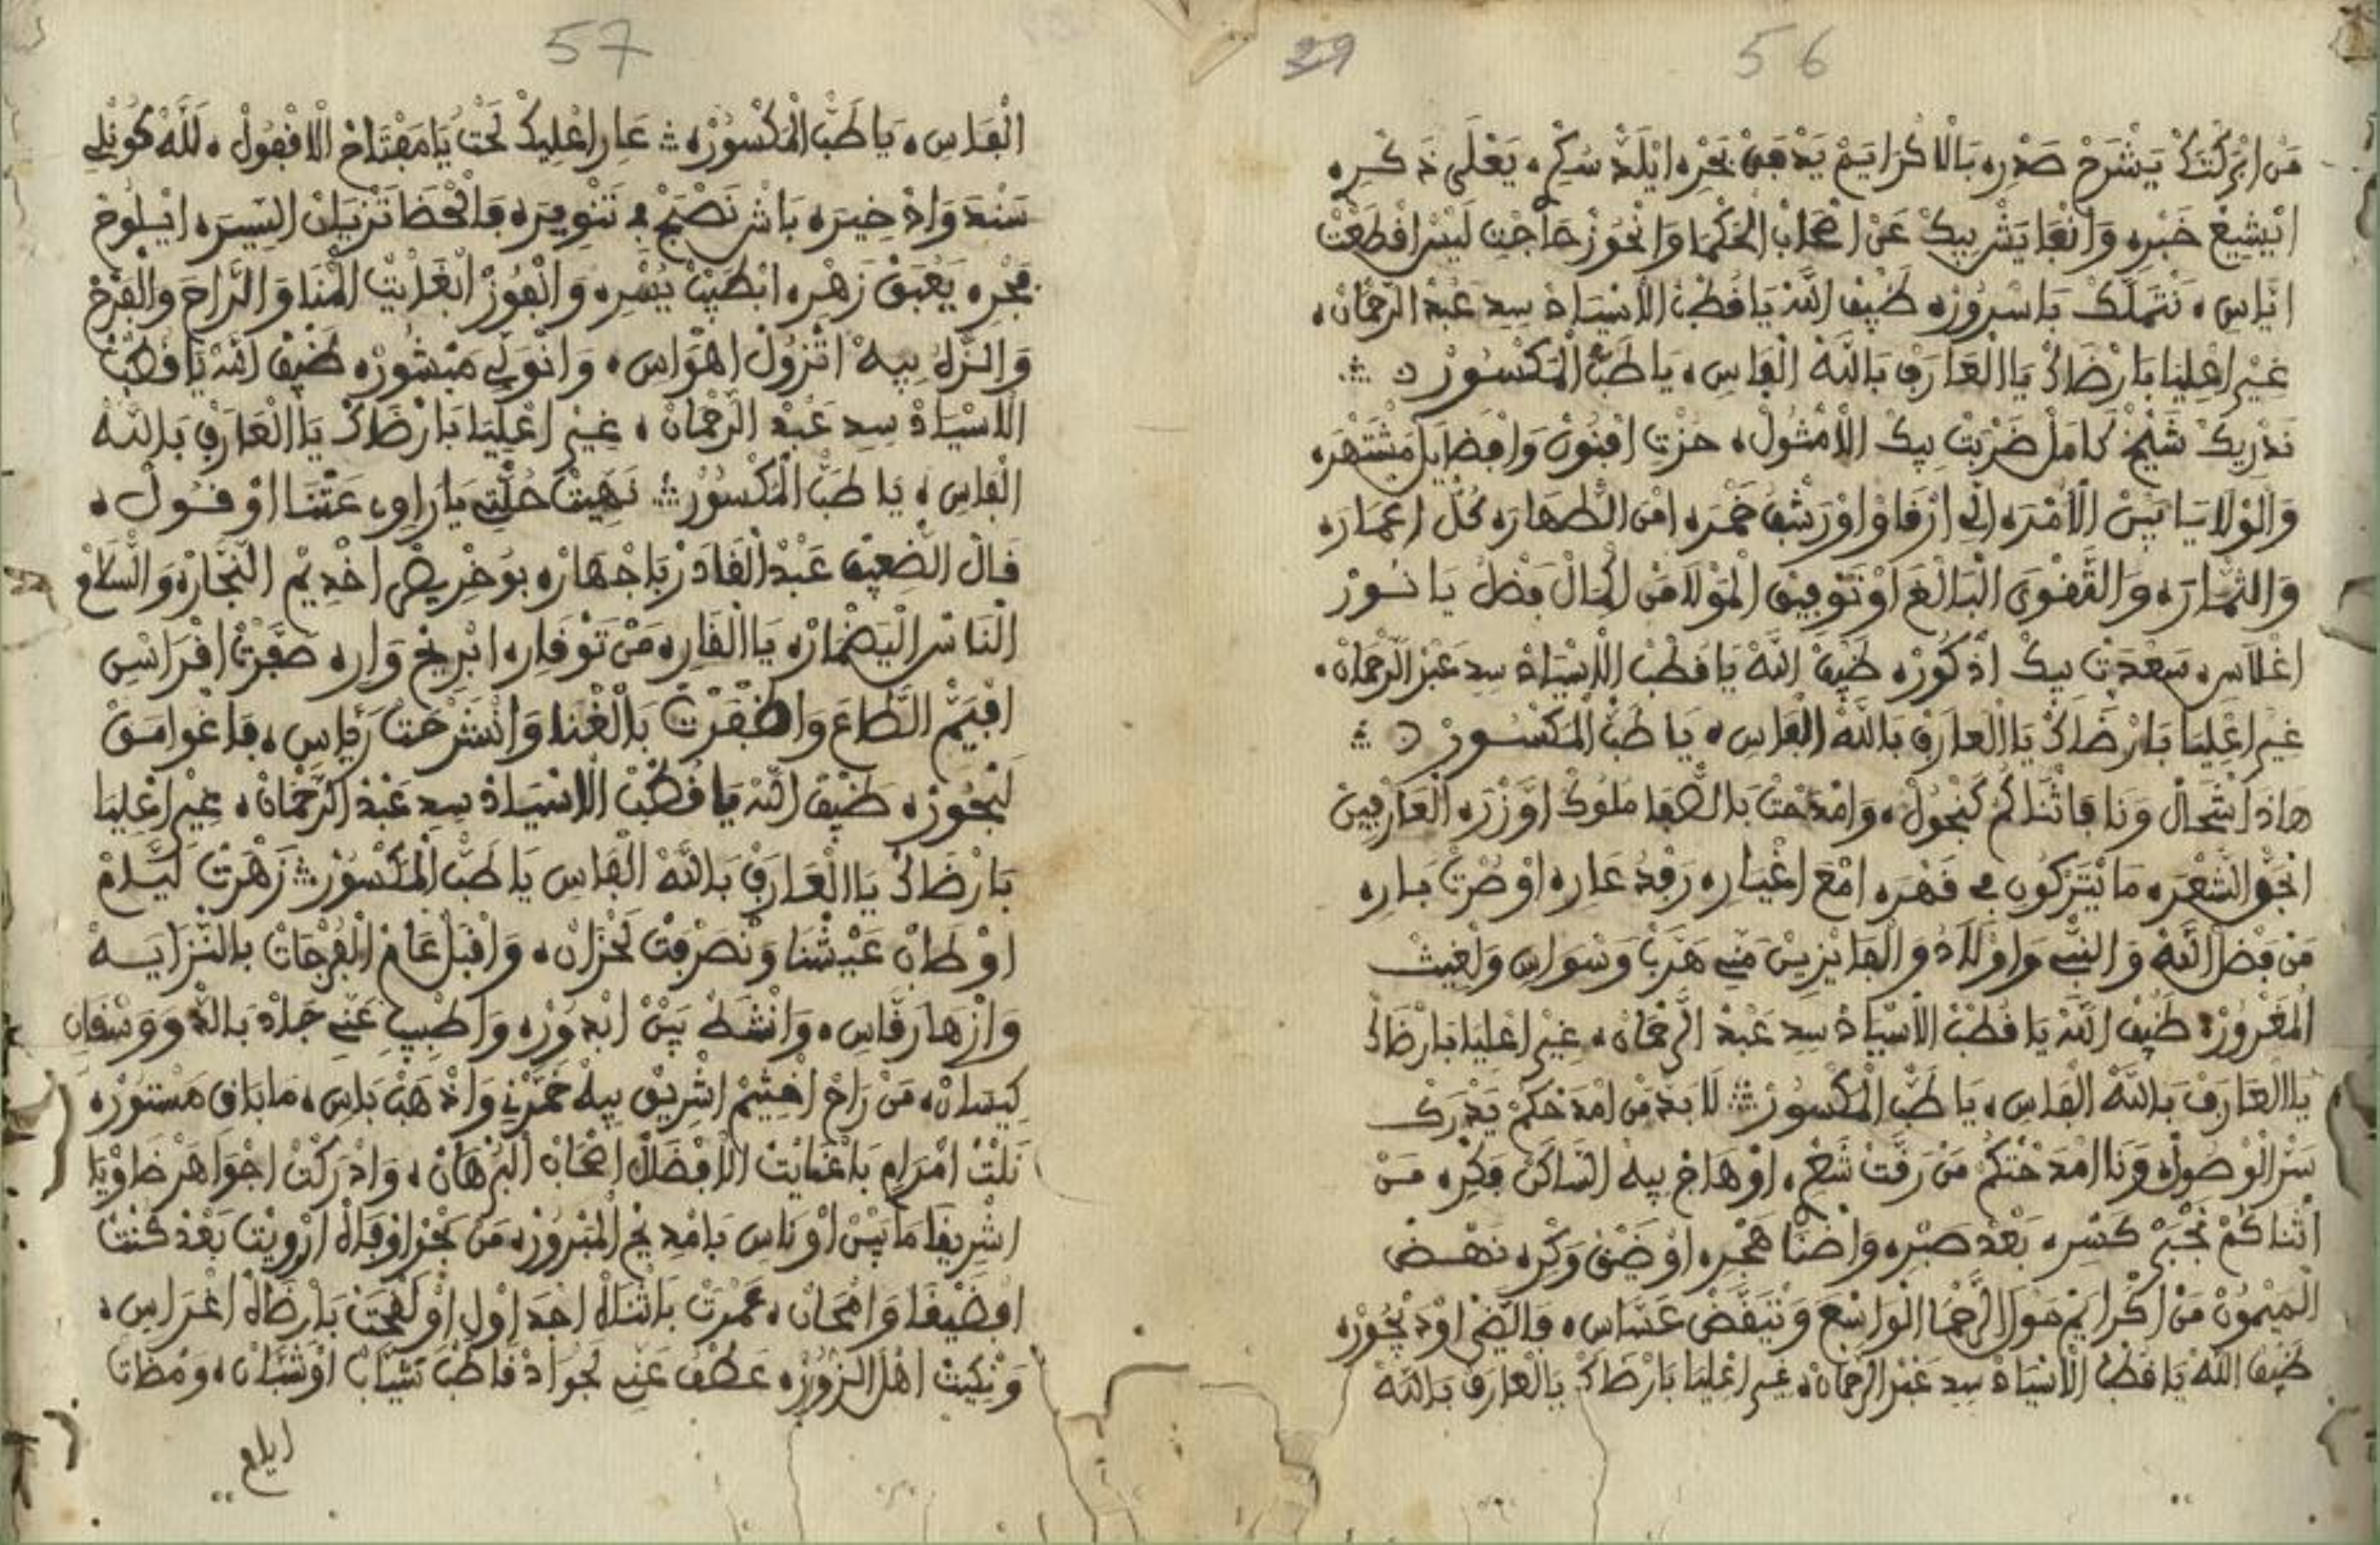 56
29
مَن ابْرَكْتَكْ يَشْرَحْ صَدْرِه بَالَاكْرَايَمْ يَدْفَقْ بَحْرِه ايْلَدّ سُكْرِ، يَعْلَى ذَكْرِه
انْشِيعْ خَبْرِه وَانْعَا يَشْرِ بِيكْ عَنْ اصْحَابْ الْحَكْمَا وَانْحُوزْ حَاجْتِ لَيْسْ افْطَعْتْ
ايَّاسِ، نَتْمَلَّكْ بَاسْرُورْه ضَيْف اللّه يَا قُطْبْ الَاسْيَادْ سِدِ عَبْدْ الرَّحْمَانْ،
غِيرْ اعْلِيَا بَارْضَاكْ يَا الْعَارَفْ بَاللَّهْ الْفَاسِ، يَا طَبّْ الْمَكْسُورْ
نَدْرِيكْ شَيْخْ كَامَلْ ضَرْبَتْ بِيكْ الَامْثُولْ، حَزْتِ افْنُونْ وَافْضَايَلْ مَشْتَهْرَه
وَالْوْلَايَا بَيْنْ الَامْرَه ارْفَاوْ اوْرَشْفْ خَمْرَه امْنْ الطّْهَارَه كُلّْ اعْمَارَه
وَالتّْقْوَى الْبَالْغَ اوْ تَوْفِيقْ الْمَوْلَا مَن الْحَالْ فَضْلْ يَا نُورْ
اغْلَاسِ، سَعْدَتْ بِيكْ اذْكُورْه ضَيْف اللَّهْ يَا قُطْبْ الَاسْيَادْ سِدِ عَبْدْ الرَّحْمَانْ،
غِيرْ اعْلِيَا بَارْضَاكْ يَا الْعَارَفْ بَاللَّهْ الْفَاسِ، يَا طَبّْ الْمَكْسُورْ
هَاذَا شْحَالْ وَنَا فَاثْنَاكُمْ كَنْجُولْ، وَامْدَحْتْ بَالصّْفَا مْلُوكْ اوْزْرَه الْعَارْفِينْ
انْجُو الشَّعْرَه مَا يْتَرْكُونِ فِي قَهْرَه امْعَ اغْيَارِه رَفْدْ عَارِه اوْ صْرْتْ بَارِه
مَنْ فَضْل اللَّهْ وَالنّْبِي وَاوْلَادُ وَالْفَايْزِينْ مَنِّي هَرَّبْ وَسْوَاسِ وَلْغِيثْ
الْمَغْرُورْ، ضَيْف اللّه يَا قُطْبْ الَاسْيَادْ سِدِ عَبْدْ الرَّحْمَانْ، غِيرْ اعْلِيَا بَارْضَاكْ
يَا الْعَارَفْ بَاللَّهْ الْفَاسِ، يَا طَبّْ الْمَكْسُورْ لَا بَدّْ مَن امْدَحْكُمْ يَدْرَكْ
سَرّْ الْوْصُولْ، وَنَا امْدَحْتْكُمْ مَنْ رَقَّتْ شَعْرِ، اوْهَاجْ بِيهْ السَّاكَنْ فِكْرِه مَنْ
اثْنَاكُمْ نَجْبَرْ كَسْرِه بَعْدْ صَبْرِه وَاضْنَا هَجْرِه اوْ ضِيقْ وَكْرِه نَهْضْ
الْمَيْمُونْ مَنْ اكْرَايَمْ مَوْلَا الرّْحْمَا الْوَاسْعَ وَنْتِيفَضْ عَسَّاسِ، وَالضّْيِ اوْدَيْجُورْه
ضَيْف اللَّهْ يَا قُطْبْ الَاسْيَادْ سِدِ عَبْدْ الرَّحْمَانْ، غِيرْ اعْلِيَا بَارْضَاكْ يَا الْعَارَفْ بَاللَّهْ
57
الْفَاسِ، يَا طَبّْ الْمَكْسُورْه عَارِ اعْلِيكْ تَحْتْ يَا مَفْتَاحْ الَاقْفُولْ، لَلَّهْ كُونْ لِي
سَنْدْ وَاذْخِيرَه بَاشْ نَصْبَحْ فِي تَنْوِيرَه فَالْحْظَا تَزْيَانْ السِّيرَه ايْلُوحْ
فَجْرِه يَعْبَقْ زَهْرِه ابْطَيَّبْ نَشْرِه وَانْفُوزْ ابْغَايْتْ الْمْنَا وَالرَّاحَ وَالْفَرْحْ
وَالنّْزَهْ بِيهْ اتْزُولْ اهْوَاسِ، وَانْوَلِّي مَبْشُورْه ضَيْف اللّه يَا قُطْبْ
الَاسْيَادْ سِدِ عَبْدْ الرَّحْمَانْ، غِيرْ اعْلِيَا بَارْضَاكْ يَا الْعَارَفْ بَاللَّهْ
الْفَاسِ، يَا طَبّْ الْمَكْسُورْ نَهِيتْ حُلّْتِي يَارَاوِ، عَنَّا اوْ قُولْ،
قَالْ الضّْعِيفْ عَبْدْ الْقَادَرْ بَاجْهَارْه بُوخْرِيصْ اخْدِيمْ النَّجَّارْه وَالسّْلَامْ
النَّاسْ الْيَضْمَارْه يَا الْقَارِه مَنْ تَوْقَارِه ابْرِيخْ وَارِه صَفَّرْتْ افْرَاسِ
اقْيَمْ الطَّاعَ وَاظْفَرْتْ بَالْغْنَا وَانْشَرْحَتْ رْيَاسِ، فَاغْوَامَقْ
لَبْحُورْه ضَيْف اللّه يَا قُطْبْ الَاسْيَادْ سِدِ عَبْدْ الرَّحْمَانْ، غِيرْ اعْلِيَا
بَارْضَاكْ يَا الْعَارَفْ بَاللَّهْ الْفَاسِ يَا طَبّْ الْمَكْسُورْ زَهْرَتْ لَيَّامْ
اوْ طَابْ عَيْشْنَا وَنْصَرْفَتْ لَحْزَانْ، وَاقْبَلْ عَامْ الْفُرْجَاتْ بَالنّْزَايَهْ
وَازْهَارْ قَاسِ، وَانْشَطْ بَيْنْ ابْدُورْه وَاطْبِيبْ عَنِّي جَادْ بَالدّْوَ وَسْقَانِ
كِيسَانْ، مَنْ رَاحْ اخْتِيمْ اشْرِيقْ بِيهْ خَمَّرْنِي وَاذْهَبْ بَاسِ، مَا بَاقِ مَسْتُورْه
نَلْتْ امْرَامِ بَاغْنَايْتْ الَافْضَالْ اصْحَابْ الْبُرْهَانْ، وَادْرَكْتْ اجْوَاهَرْ ضَاوْيَا
اشْرِيقَا مَا بَيْنْ اوْنَاسِ بَامْدِيحْ الْمَبْرُورْه مَنْ بَحْرْ اوْفَاهْ ارْوِيتْ بَعْدْ كُنْتْ
افْضَيْقَا وَامْحَانْ، عَمْرَتْ بَاثْنَاهْ اجْدَاوْلِ اوْ لَقْحَتْ بَارْضَاهْ اغْرَاسِ،
وَنْكِيتْ اهْلْ الزُّورْه عَطْفْ عَنِّي لَجْوَادْ قَاطْبَ شْيَابْ اوْشُبَّانْ، وَمْضَاتْ